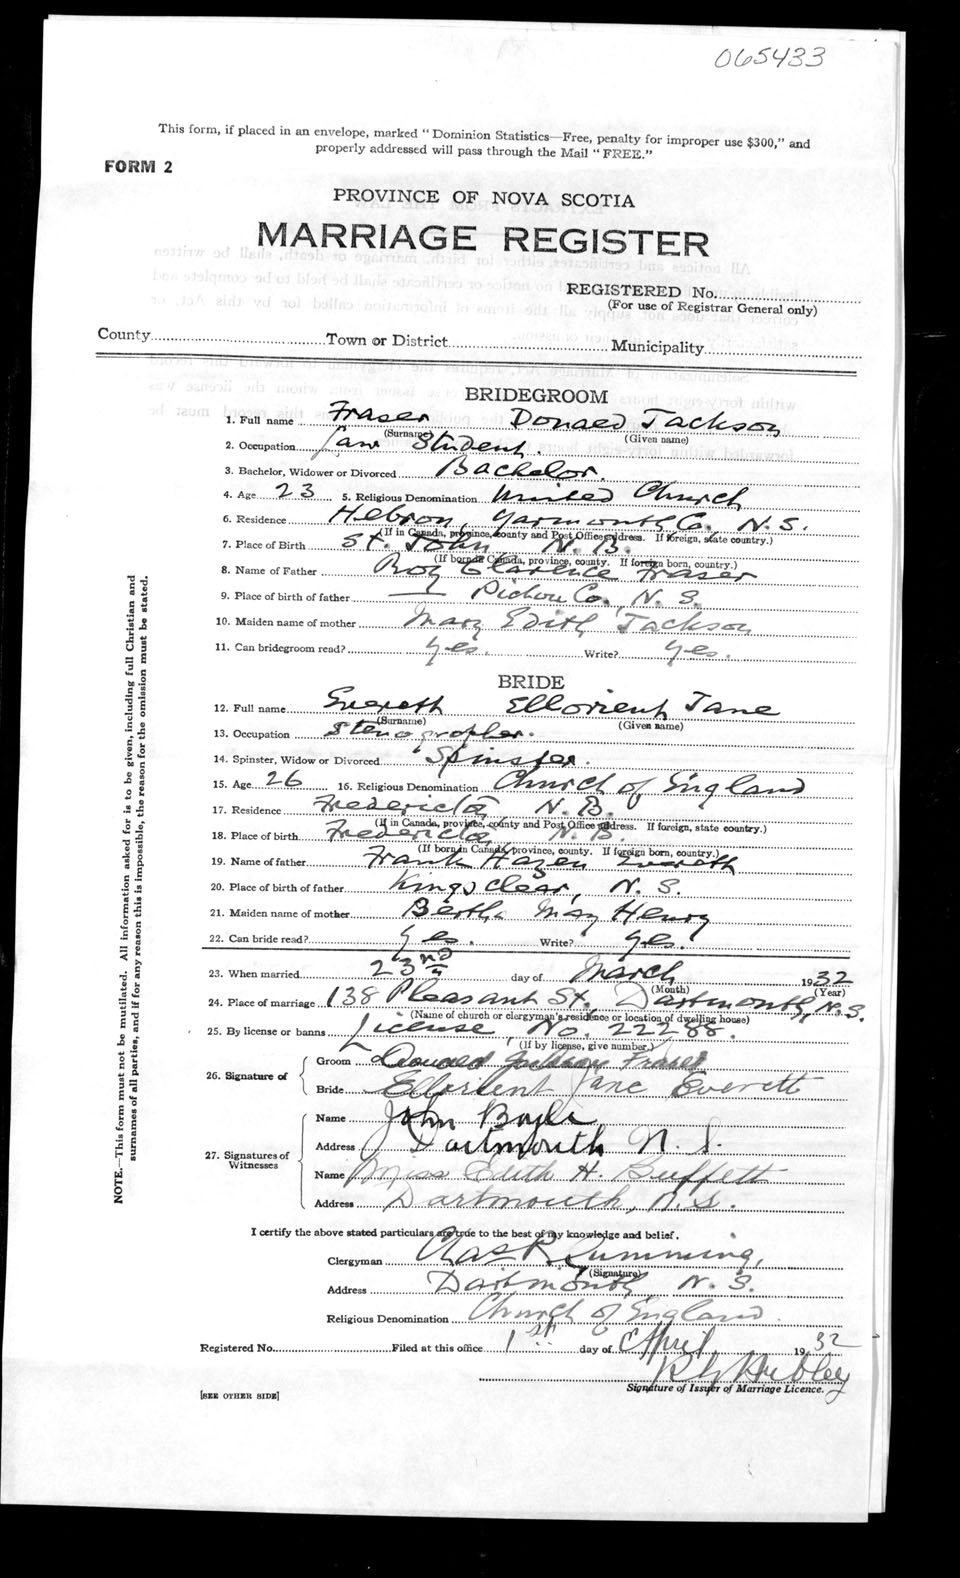 065433
This form, if placed in an envelope, marked "Dominion Statistics—Free, penalty for improper use $300," and
properly addressed will pass through the Mail "FREE."
FORM 2
PROVINCE OF NOVA SCOTIA
MARRIAGE REGISTER
REGISTERED No.
(For use of Registrar General only)
County Town or District Municipality
BRIDEGROOM
1. Full name Fraser Donald Jackson
(Surname) (Given name)
2. Occupation Law Student.
3. Bachelor, Widower or Divorced Bachelor.
4. Age 23 5. Religious Denomination United Church
6. Residence Hebron, Yarmouth Co. N.S.
(If in Canada, province, county and Post Office address. If foreign, state country.)
7. Place of Birth St. John N. B.
(If born in Canada, province, county. If foreign born, country.)
8. Name of Father Roy Clarence Fraser
9. Place of birth of father Pictou Co., N. S.
10. Maiden name of mother Mary Edith Jackson
11. Can bridegroom read? Yes. Write? Yes.
BRIDE
12. Full name Everett Ellorient Jane
(Surname) (Given name)
13. Occupation Stenographer.
14. Spinster, Widow or Divorced Spinster.
15. Age 26 16. Religious Denomination Church of England
17. Residence Fredericton N. B.
(If in Canada, province, county and Post Office address. If foreign, state country.)
18. Place of birth Fredericton N. B.
(If born in Canada, province, county. If foreign born, country.)
19. Name of father Frank Hazen Everett
20. Place of birth of father Kingsclear, N. S.
21. Maiden name of mother Bertha May Henry
22. Can bride read? Yes. Write? Yes.
23. When married 23rd day of March 1932
(Month) (Year)
24. Place of marriage 138 Pleasant St. Dartmouth, N.S.
(Name of church or clergyman's residence or location of dwelling house)
25. By license or banns License No. 22288.
(If by license, give number.)
26. Signature of Groom Donald Jackson Fraser
Bride Ellorient Jane Everett
27. Signatures of Witnesses Name John Boyle
Address Dartmouth N. S.
Name Miss Edith H. Buffett
Address Dartmouth, N.S.
I certify the above stated particulars are true to the best of my knowledge and belief.
Clergyman Chas R Cumming,
(Signature)
Address Dartmouth N. S.
Religious Denomination Church of England.
Registered No. Filed at this office 1st day of April 1932
Signature of Issuer of Marriage Licence.
[SEE OTHER SIDE]
NOTE.—This form must not be mutilated. All information asked for is to be given, including full Christian and
surnames of all parties, and if for any reason this is impossible, the reason for the omission must be stated.